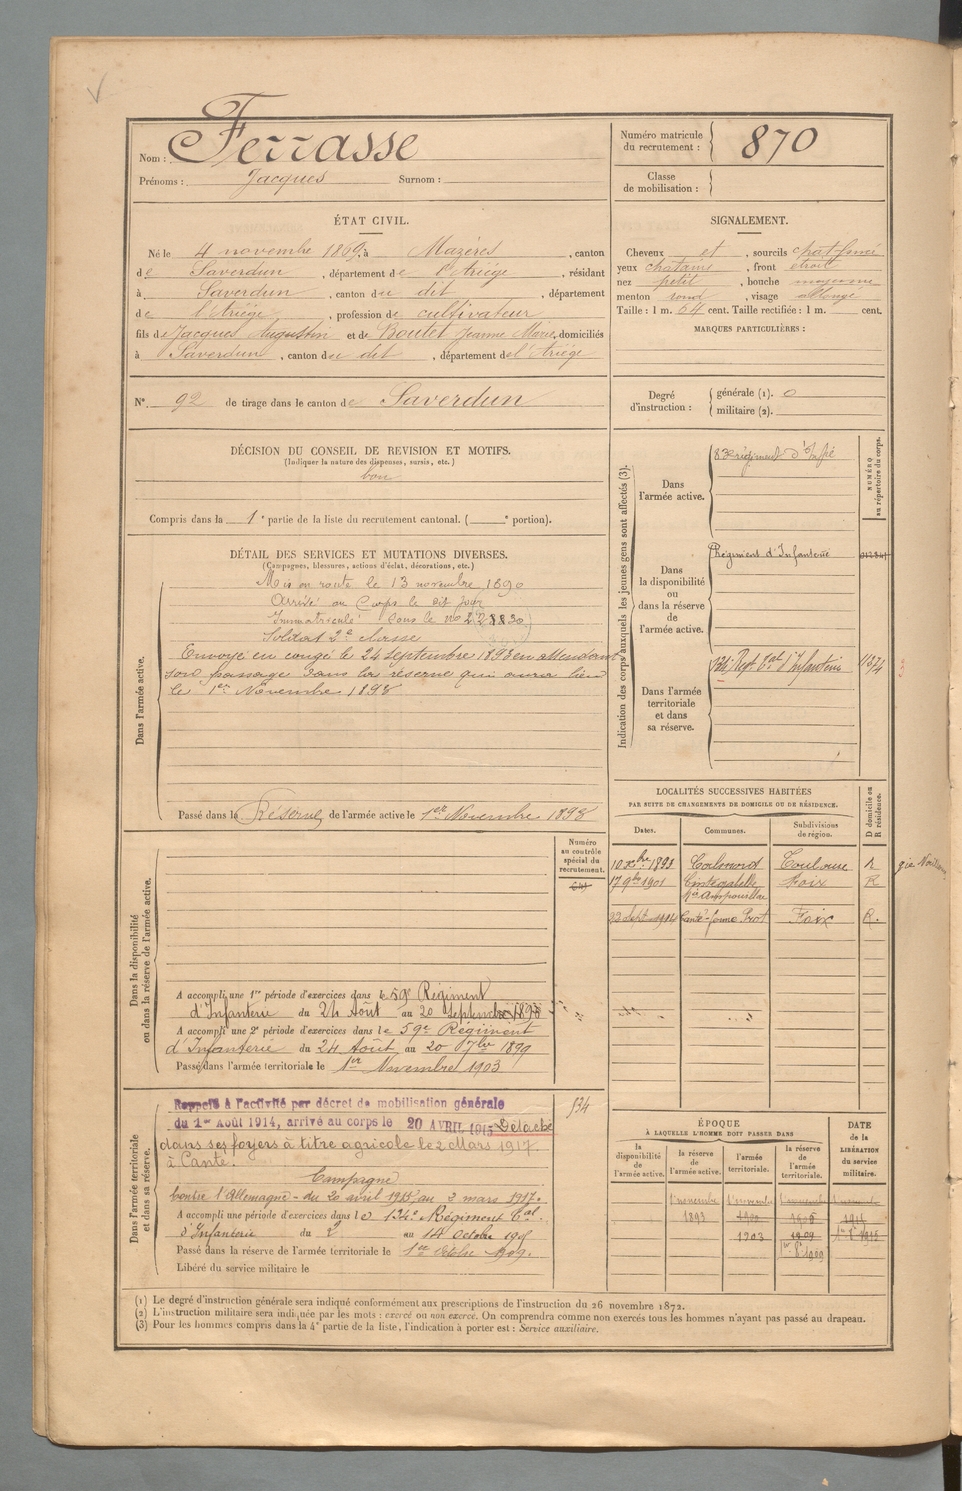 Nom : Ferrasse
Prénoms : Jacques Surnom :
Numéro matricule du recrutement : 870
Classe de mobilisation :
ÉTAT CIVIL.
Né le 4 novembre 1869, à Mazères, canton
de Saverdun, département de l'Ariége, résidant
à Saverdun, canton du dit, département
de l'Ariége, profession de cultivateur
fils de Jacques Augustin et de Boutet Jeanne Marie, domiciliés
à Saverdun, canton du dit, département de l'Ariége
N°. 92 de tirage dans le canton de Saverdun
SIGNALEMENT.
Cheveux et, sourcils chat foncé
yeux chatains, front étroit
nez petit, bouche moyenne
menton rond, visage allongé
Taille : 1 m. 64 cent. Taille rectifiée : 1 m. cent.
MARQUES PARTICULIÈRES :
Degré d'instruction : générale (1). 0
militaire (2).
DÉCISION DU CONSEIL DE REVISION ET MOTIFS.
(Indiquer la nature des dispenses, sursis, etc.)
bon
Compris dans la 1e partie de la liste du recrutement cantonal. (e portion).
DÉTAIL DES SERVICES ET MUTATIONS DIVERSES.
(Campagnes, blessures, actions d'éclat, décorations, etc.)
Dans l'armée active.
Mis en route le 13 novembre 1890
Arrivé au Corps le dit jour
Immatriculé sous le no
Soldat 2e classe
Envoyé en congé le 24 septembre 1893 en attendant
son passage dans la réserve qui aura lieu
le 1er Novembre 1893
Passé dans la Réserve de l'armée active le 1er Novembre 1893
Indication des corps auxquels les jeunes gens sont affectés (3).
NUMÉRO au répertoire du corps.
Dans l'armée active.
83e régiment d'Infie
Dans la disponibilité ou dans la réserve de l'armée active.
Régiment d'Infanterie
Dans l'armée territoriale et dans sa réserve.
134e Regt Tal d'Infanterie
LOCALITÉS SUCCESSIVES HABITÉES
PAR SUITE DE CHANGEMENTS DE DOMICILE OU DE RÉSIDENCE.
Dates. Communes. Subdivisions de région. D domicile ou R résidence.
Toulouse R
17 9bre 1901 Cintegabelle Foix R
22 Sept 1914 Canté Foix R.
Dans la disponibilité ou dans la réserve de l'armée active.
Numéro au contrôle spécial du recrutement.
A accompli une 1re période d'exercices dans le 59e Régiment
d'Infanterie du 24 Août au 20 Septembre
A accompli une 2e période d'exercices dans le 59e Régiment
d'Infanterie du 24 Août au 20 7bre 1899
Passé dans l'armée territoriale le 1er Novembre 1903
Dans l'armée territoriale et dans sa réserve.
Rappelé à l'activité par décret de mobilisation générale
du 1er Août 1914, arrivé au corps le 20 AVRIL 1915 Détaché
dans ses foyers à titre agricole le 2 Mars 1917
à Canté.
Campagne
Contre l'Allemagne - du 20 avril 1915 au 2 mars 1917.
A accompli une période d'exercices dans le 134e Régiment Tal.
d'Infanterie du 2 au 14 Octobre
Passé dans la réserve de l'armée territoriale le 1er Octobre 1909.
Libéré du service militaire le
ÉPOQUE
À LAQUELLE L'HOMME DOIT PASSER DANS
la disponibilité de l'armée active.
la réserve de l'armée active.
l'armée territoriale.
la réserve de l'armée territoriale.
DATE de la LIBÉRATION du service militaire.
1 novembre 1 novembre 1 novembre 1 novembre
1893
1903 1909
(1) Le degré d'instruction générale sera indiqué conformément aux prescriptions de l'instruction du 26 novembre 1872.
(2) L'instruction militaire sera indiquée par les mots : exercé ou non exercé. On comprendra comme non exercés tous les hommes n'ayant pas passé au drapeau.
(3) Pour les hommes compris dans la 4e partie de la liste, l'indication à porter est : Service auxiliaire.